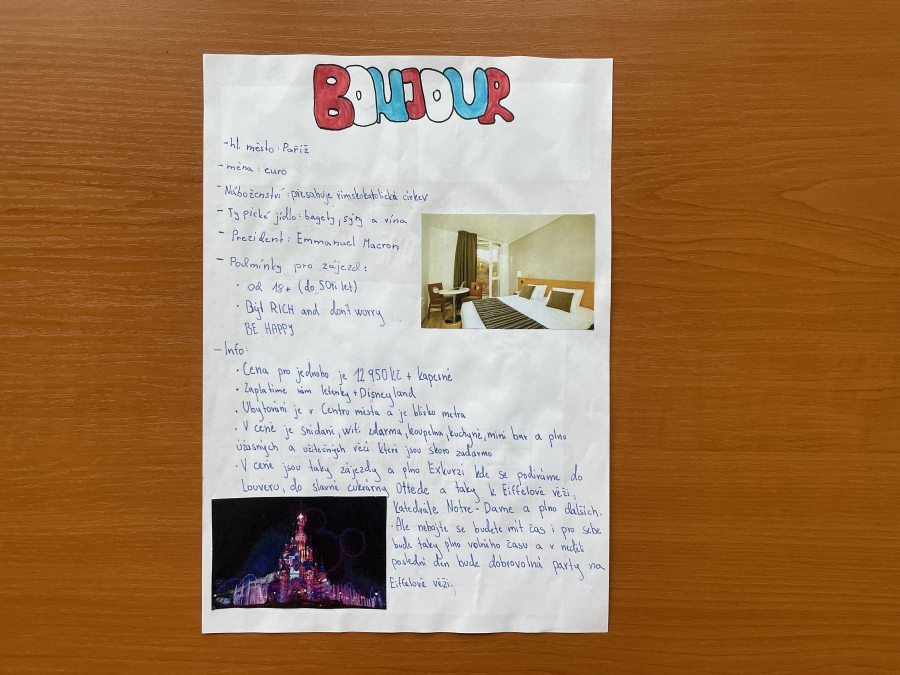 BONJOUR
- hl. město: Paříž
- měna: euro
- Náboženství: přesahuje římskokatolická církev
- Typické jídlo: bagety, sýry a vína
- Prezident: Emmanuel Macron
- Podmínky pro zájezd:
• od 18+ (do 50ti let)
• Být RICH and don't worry
BE HAPPY
- Info:
• Cena pro jednoho je 12 950 Kč + kapesné
• Zaplatíme vám letenky + Disneyland
• Ubytování je v Centru města a je blízko metra
• V ceně je snídaně, wifi zdarma, koupelna, kuchyně, mini bar a plno
úžasných a užitečných věcí které jsou skoro zadarmo
• V ceně jsou taky zájezdy a plno Exkurzí kde se podíváme do
Louveru, do slavné cukrárny Ottede a taky k Eiffelově věži,
Katedrále Notre-Dame a plno dalších.
• Ale nebojte se budete mít čas i pro sebe
bude taky plno volného času a v neděli
poslední den bude dobrovolná party na
Eiffelově věži.